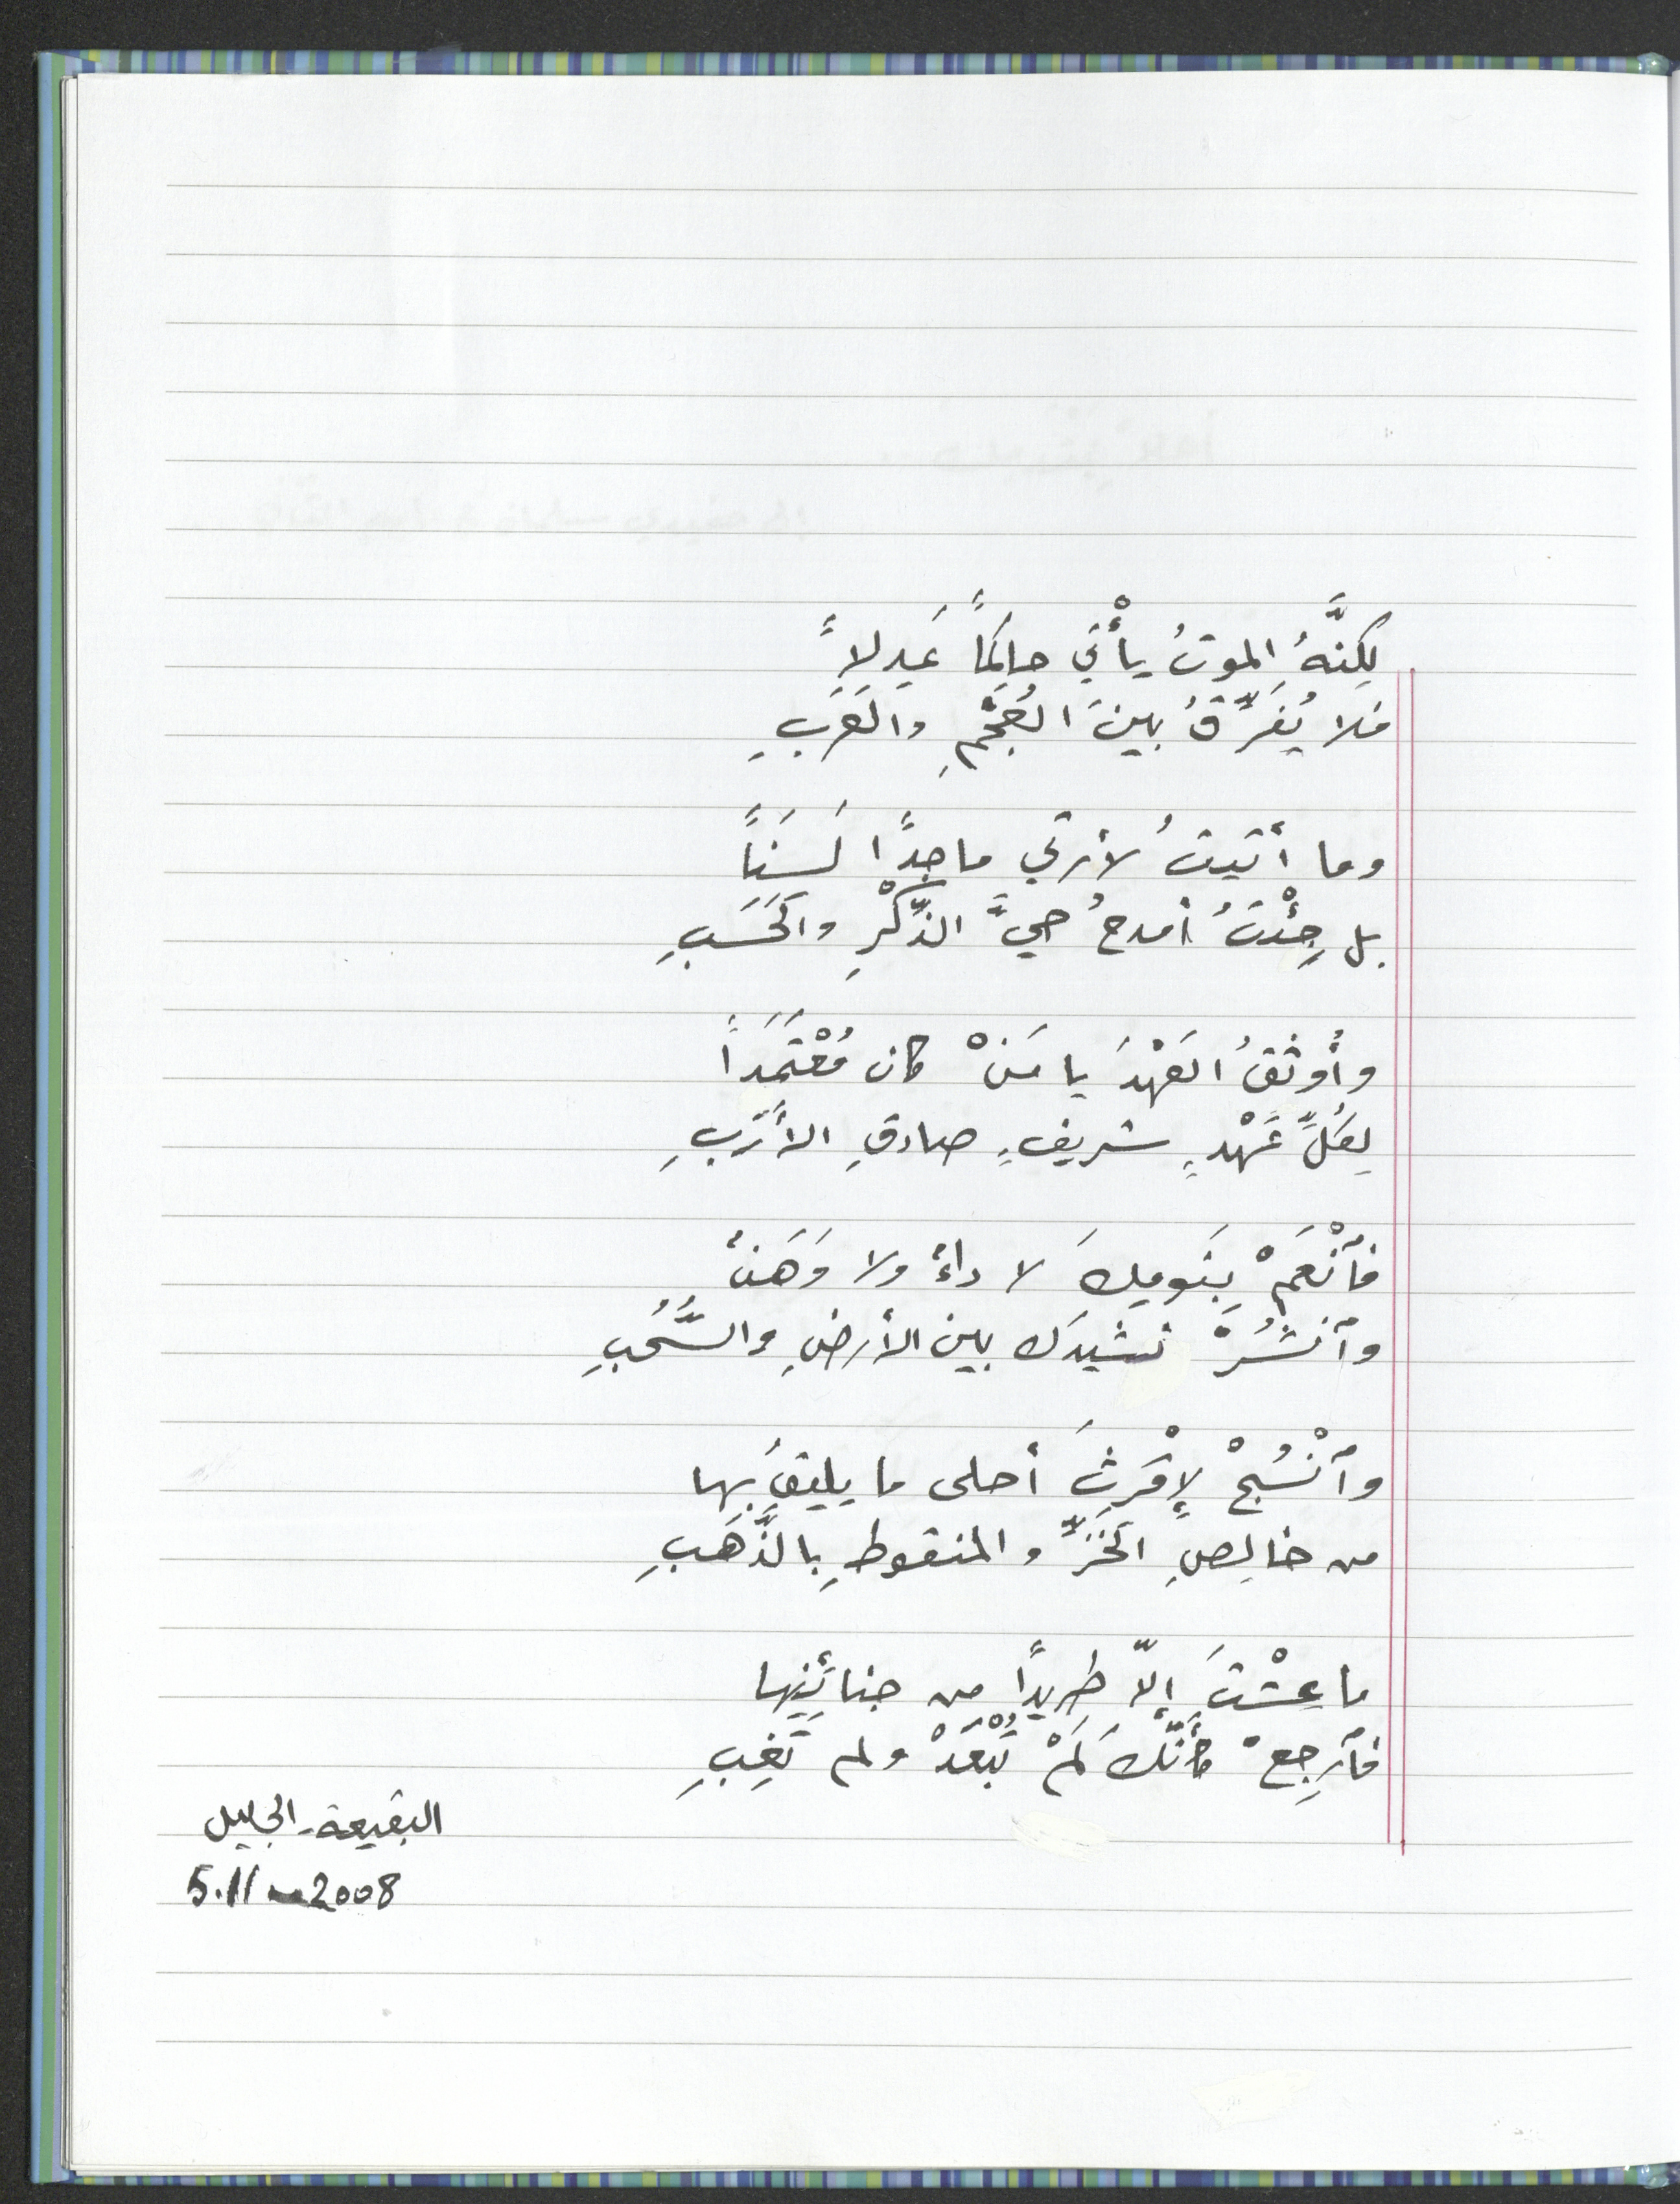 لكِنَّهُ الموتُ يأْتي حاكِمًا عَدِلاً
فلا يُفَرِّقُ بينَ العُجْمِ والعَرَبِ
وما أتيتُ لأرثي ماجدًا لَسِنًا
بل جِئْتُ أمدحُ حيَّ الذِّكْرِ والحَسَبِ
وأُوثقُ العَهْدَ يا مَنْ كان مُعْتَمَدًا
لِكُلِّ عَهْدٍ شريفٍ صادقِ الأَرَبِ
فٱنْعَمْ بِنَومِكَ لا داءٌ ولا وَهَنٌ
وٱنشُرْ نشيدَك بين الأرضِ والسُّحُبِ
وٱنْسُجْ لإقْرِثَ أحلى ما يليقُ بها
من خالِصِ الخَزِّ والمنقوطِ بالذَّهَبِ
ما عِشْتَ إلاّ طريدًا من جنائِنِها
فٱرجِعْ كأنَّكَ لَمْ تَبْعُدْ ولم تَغِبِ
البقيعة - الجليل
5.11 2008